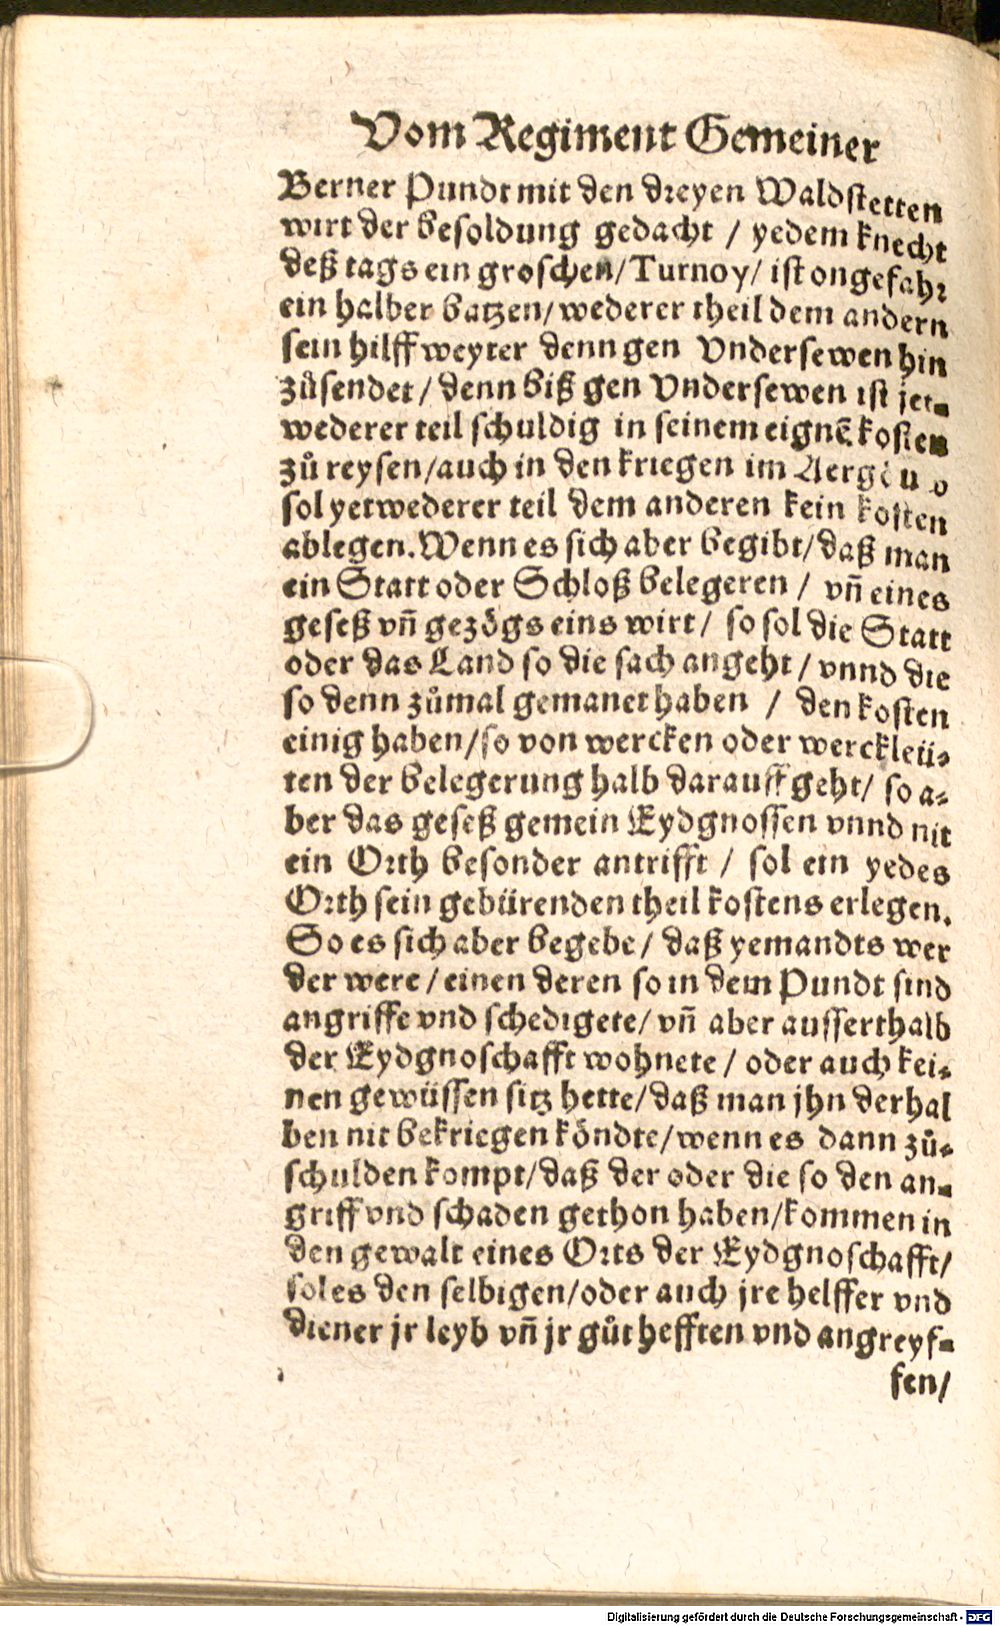 Vom Regiment Gemeiner
Berner Pundt mit den dreyen Waldstetten
wirt der besoldung gedacht / yedem knecht
deß tags ein groschen/ Turnoy/ ist ongefahr
ein halber batzen/ wederer theil dem andern
sein hilff weyter denn gen Vndersewen hin
zůsendet / denn biß gen Vndersewen ist jet⸗
wederer teil schuldig in seinem eignẽ kosten
zů reysen/auch in den kriegen im
sol yetwederer teil dem anderen kein kosten
ablegen. Wenn es sich aber begibt/ daß man
ein Statt oder Schloß belegeren / vñ eines
geseß vñ gezögs eins wirt/ so sol die Statt
oder das Land so die sach angeht / vnnd die
so denn zůmal gemanet haben / den kosten
einig haben/so von wercken oder werckleü⸗
ten der belegerung halb darauff geht/ so a⸗
ber das geseß gemein Eydgnossen vnnd nit
ein Orth besonder antrifft / sol ein yedes
Orth sein gebürenden theil kostens erlegen.
So es sich aber begebe/ daß yemandts wer
der were / einen deren so in dem Pundt sind
angriffe vnd schedigete/ vñ aber ausserthalb
der Eydgnoschafft wohnete / oder auch kei⸗
nen gewüssen sitz hette/daß man jhn derhal
ben nit bekriegen köndte/wenn es dann zů⸗
schulden kompt/daß der oder die so den an⸗
griff vnd schaden gethon haben/kommen in
den gewalt eines Orts der Eydgnoschafft/
sol es den selbigen/oder auch jre helffer vnd
diener jr leyb vñ jr gůt hefften vnd angreyf⸗
fen/
Digitalisierung gefördert durch die Deutsche Forschungsgemeinschaft - DFG